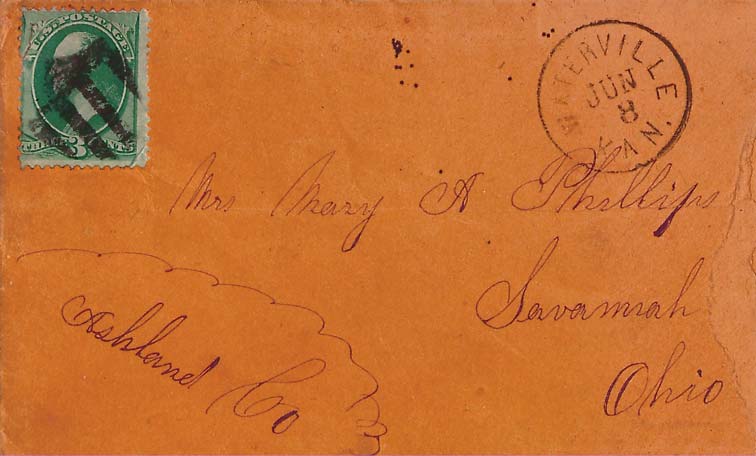 U.S. POSTAGE
WATERVILLE
JUN
8
KAN.
Mrs Mary A Phillips
Savannah
Ohio
Ashland Co